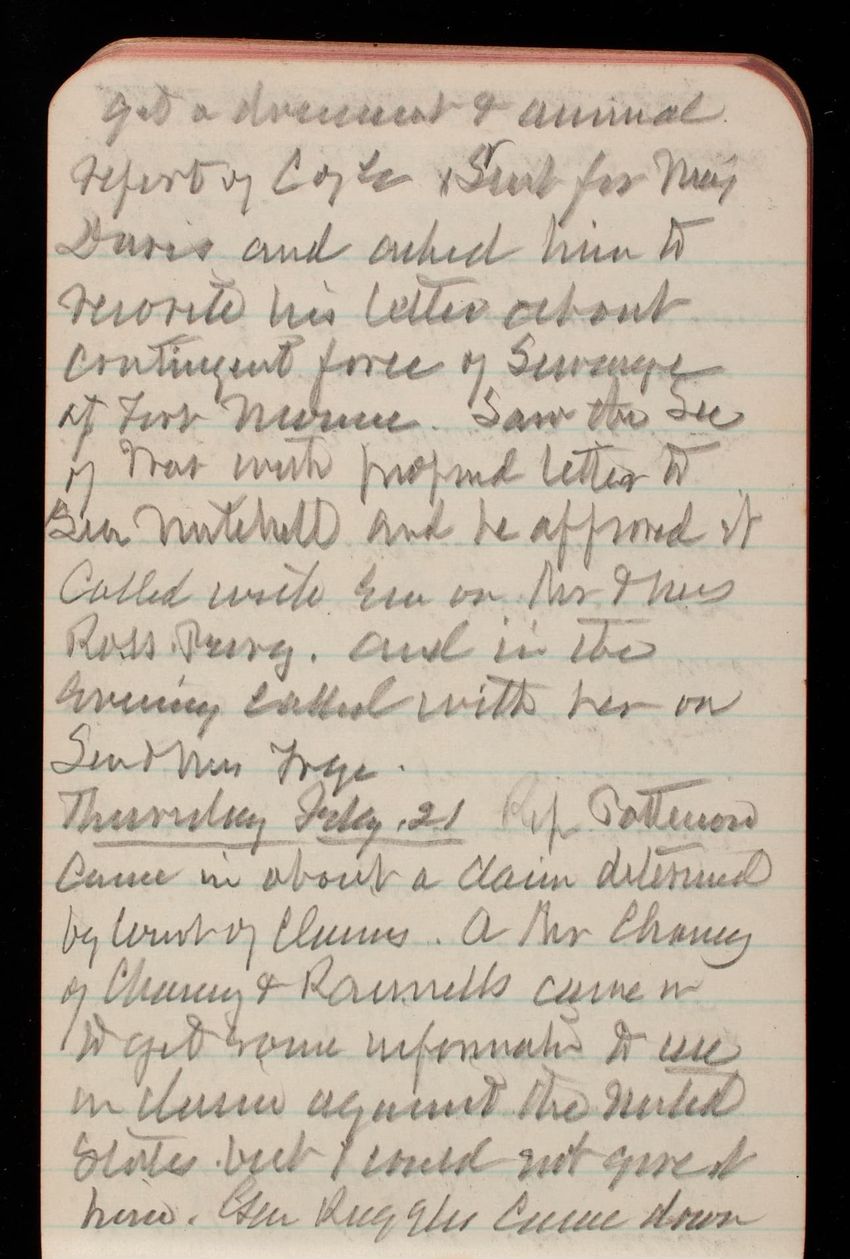 get a document & annual
report of Coyle & Sent for Maj
Davis and asked him to
rewrite his letter about
contingent force of Sewerage
at Fort Monroe. Saw the Sec
of War with proposed letter to
Gen Mitchell and he approved it
Called with Em on Mr & Mrs
Ross Perry. and in the
evening called with her on
Sen & Mrs Frye.
Thursday Feby. 21 Rep Patterson
came in about a claim determined
by Court of Claims. A Mr Chaney
of Chaney & came in
to get some information to use
in claim against the United
States but I could not give it
him. Gen Ruggles came down